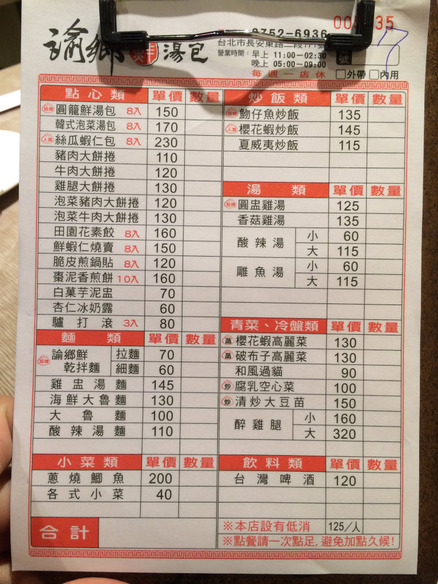 諭鄉鮮湯包
2752-6936
台北市長安東路二段
營業時間：早上 11:00-02:30
晚上 05:00-09:00
每週一店休
□外帶 □內用
點心類 單價 數量
圓龍鮮湯包 8入 150
韓式泡菜湯包 8入 170
絲瓜蝦仁包 8入 230
豬肉大餅捲 110
牛肉大餅捲 120
雞腿大餅捲 130
泡菜豬肉大餅捲 120
泡菜牛肉大餅捲 130
田園花素餃 8入 160
鮮蝦仁燒賣 8入 150
脆皮煎鍋貼 8入 120
棗泥香煎餅 10入 160
白菓芋泥盅 70
杏仁冰奶露 60
驢打滾 3入 80
麵類 單價 數量
諭鄉鮮乾拌麵 拉麵 70
細麵 60
雞盅湯麵 145
海鮮大魯麵 130
大魯麵 100
酸辣湯麵 110
小菜類 單價 數量
蔥燒鯽魚 200
各式小菜 40
合計
炒飯類 單價 數量
魩仔魚炒飯 135
櫻花蝦炒飯 145
夏威夷炒飯 115
湯類 單價 數量
圓盅雞湯 125
香菇雞湯 135
酸辣湯 小 60
大 115
雕魚湯 小 60
大 115
青菜、冷盤類 單價 數量
櫻花蝦高麗菜 130
破布子高麗菜 130
和風過貓 90
炒 腐乳空心菜 100
炒 清炒大豆苗 150
醉雞腿 小 160
大 320
飲料類 單價 數量
台灣啤酒 120
※本店設有低消 125/人
※點餐請一次點足，避免加點久候！